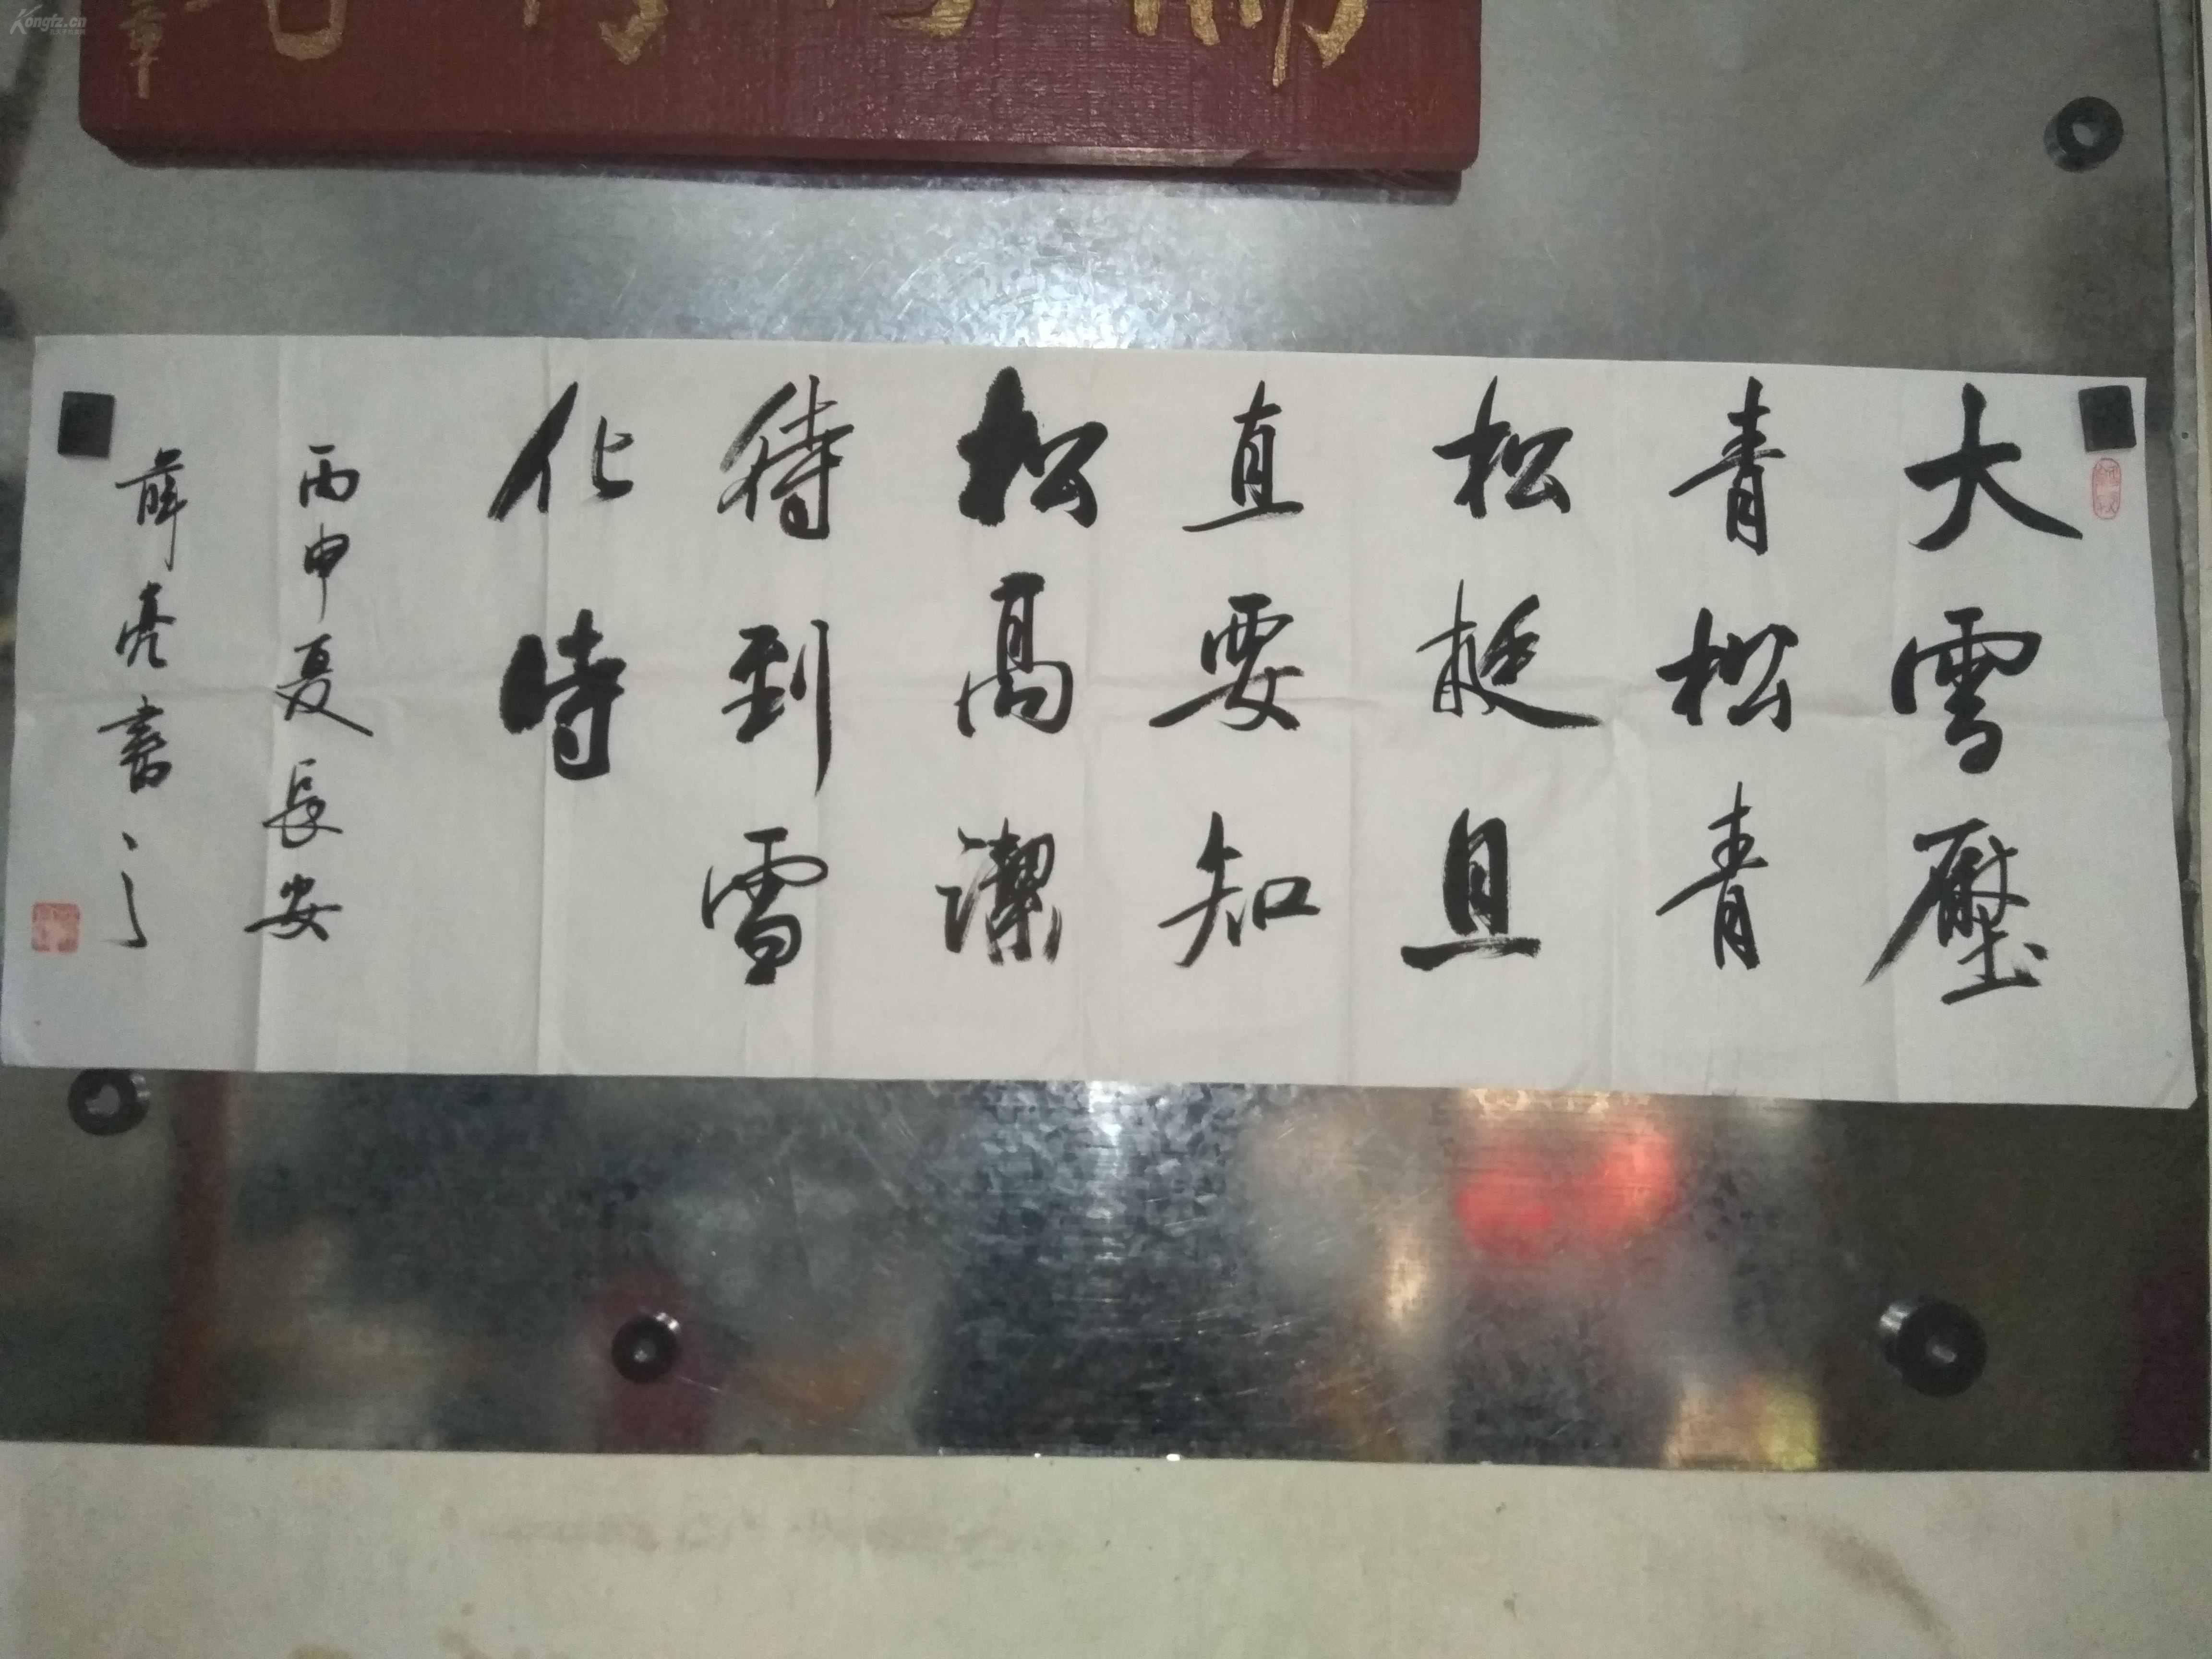 大雪壓
青松青
松挺且
直要知
松高潔
待到雪
化時
丙申夏長安
薛亮書之
Kongfz.cn